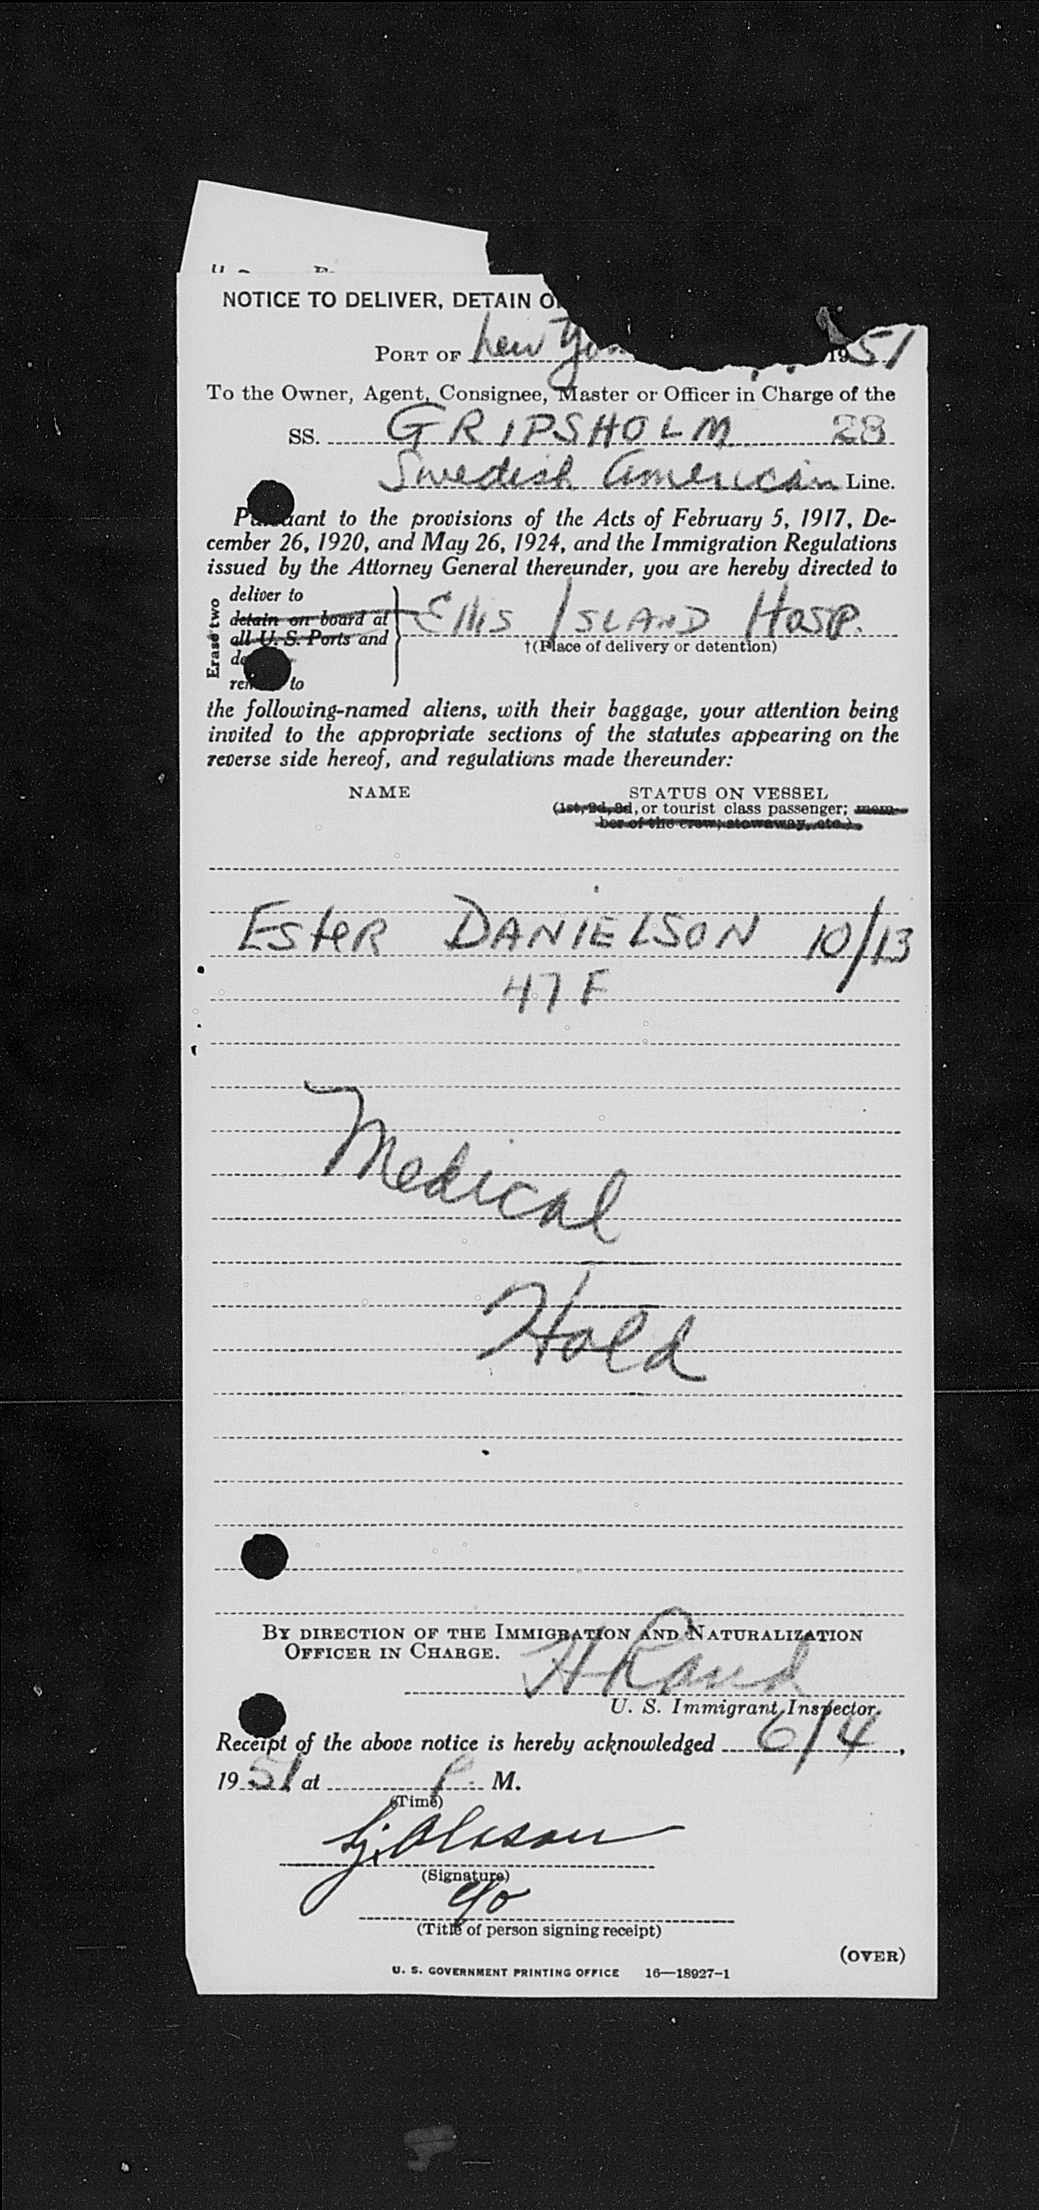 NOTICE TO DELIVER, DETAIN
PORT OF New York 1951
To the Owner, Agent, Consignee, Master or Officer in Charge of the
SS. GRIPSHOLM 28
Swedish American Line.
Pursuant to the provisions of the Acts of February 5, 1917, De-
cember 26, 1920, and May 26, 1924, and the Immigration Regulations
issued by the Attorney General thereunder, you are hereby directed to
Erase two
deliver to
detain on board at
all U. S. Ports and
to
Ellis ISLAND HOSP.
†(Place of delivery or detention)
the following-named aliens, with their baggage, your attention being
invited to the appropriate sections of the statutes appearing on the
reverse side hereof, and regulations made thereunder:
NAME STATUS ON VESSEL
(1st, 2d, 3d, or tourist class passenger; mem-
ber of the crew; stowaway, etc.)
EstER DANIELSON 10/13
47 F
Medical
Hold
BY DIRECTION OF THE IMMIGRATION AND NATURALIZATION
OFFICER IN CHARGE.
H Rand
U. S. Immigrant Inspector.
Receipt of the above notice is hereby acknowledged 6/4,
1951 at P. M.
(Time)
(Signature)
(Title of person signing receipt)
(OVER)
U. S. GOVERNMENT PRINTING OFFICE 16—18927-1